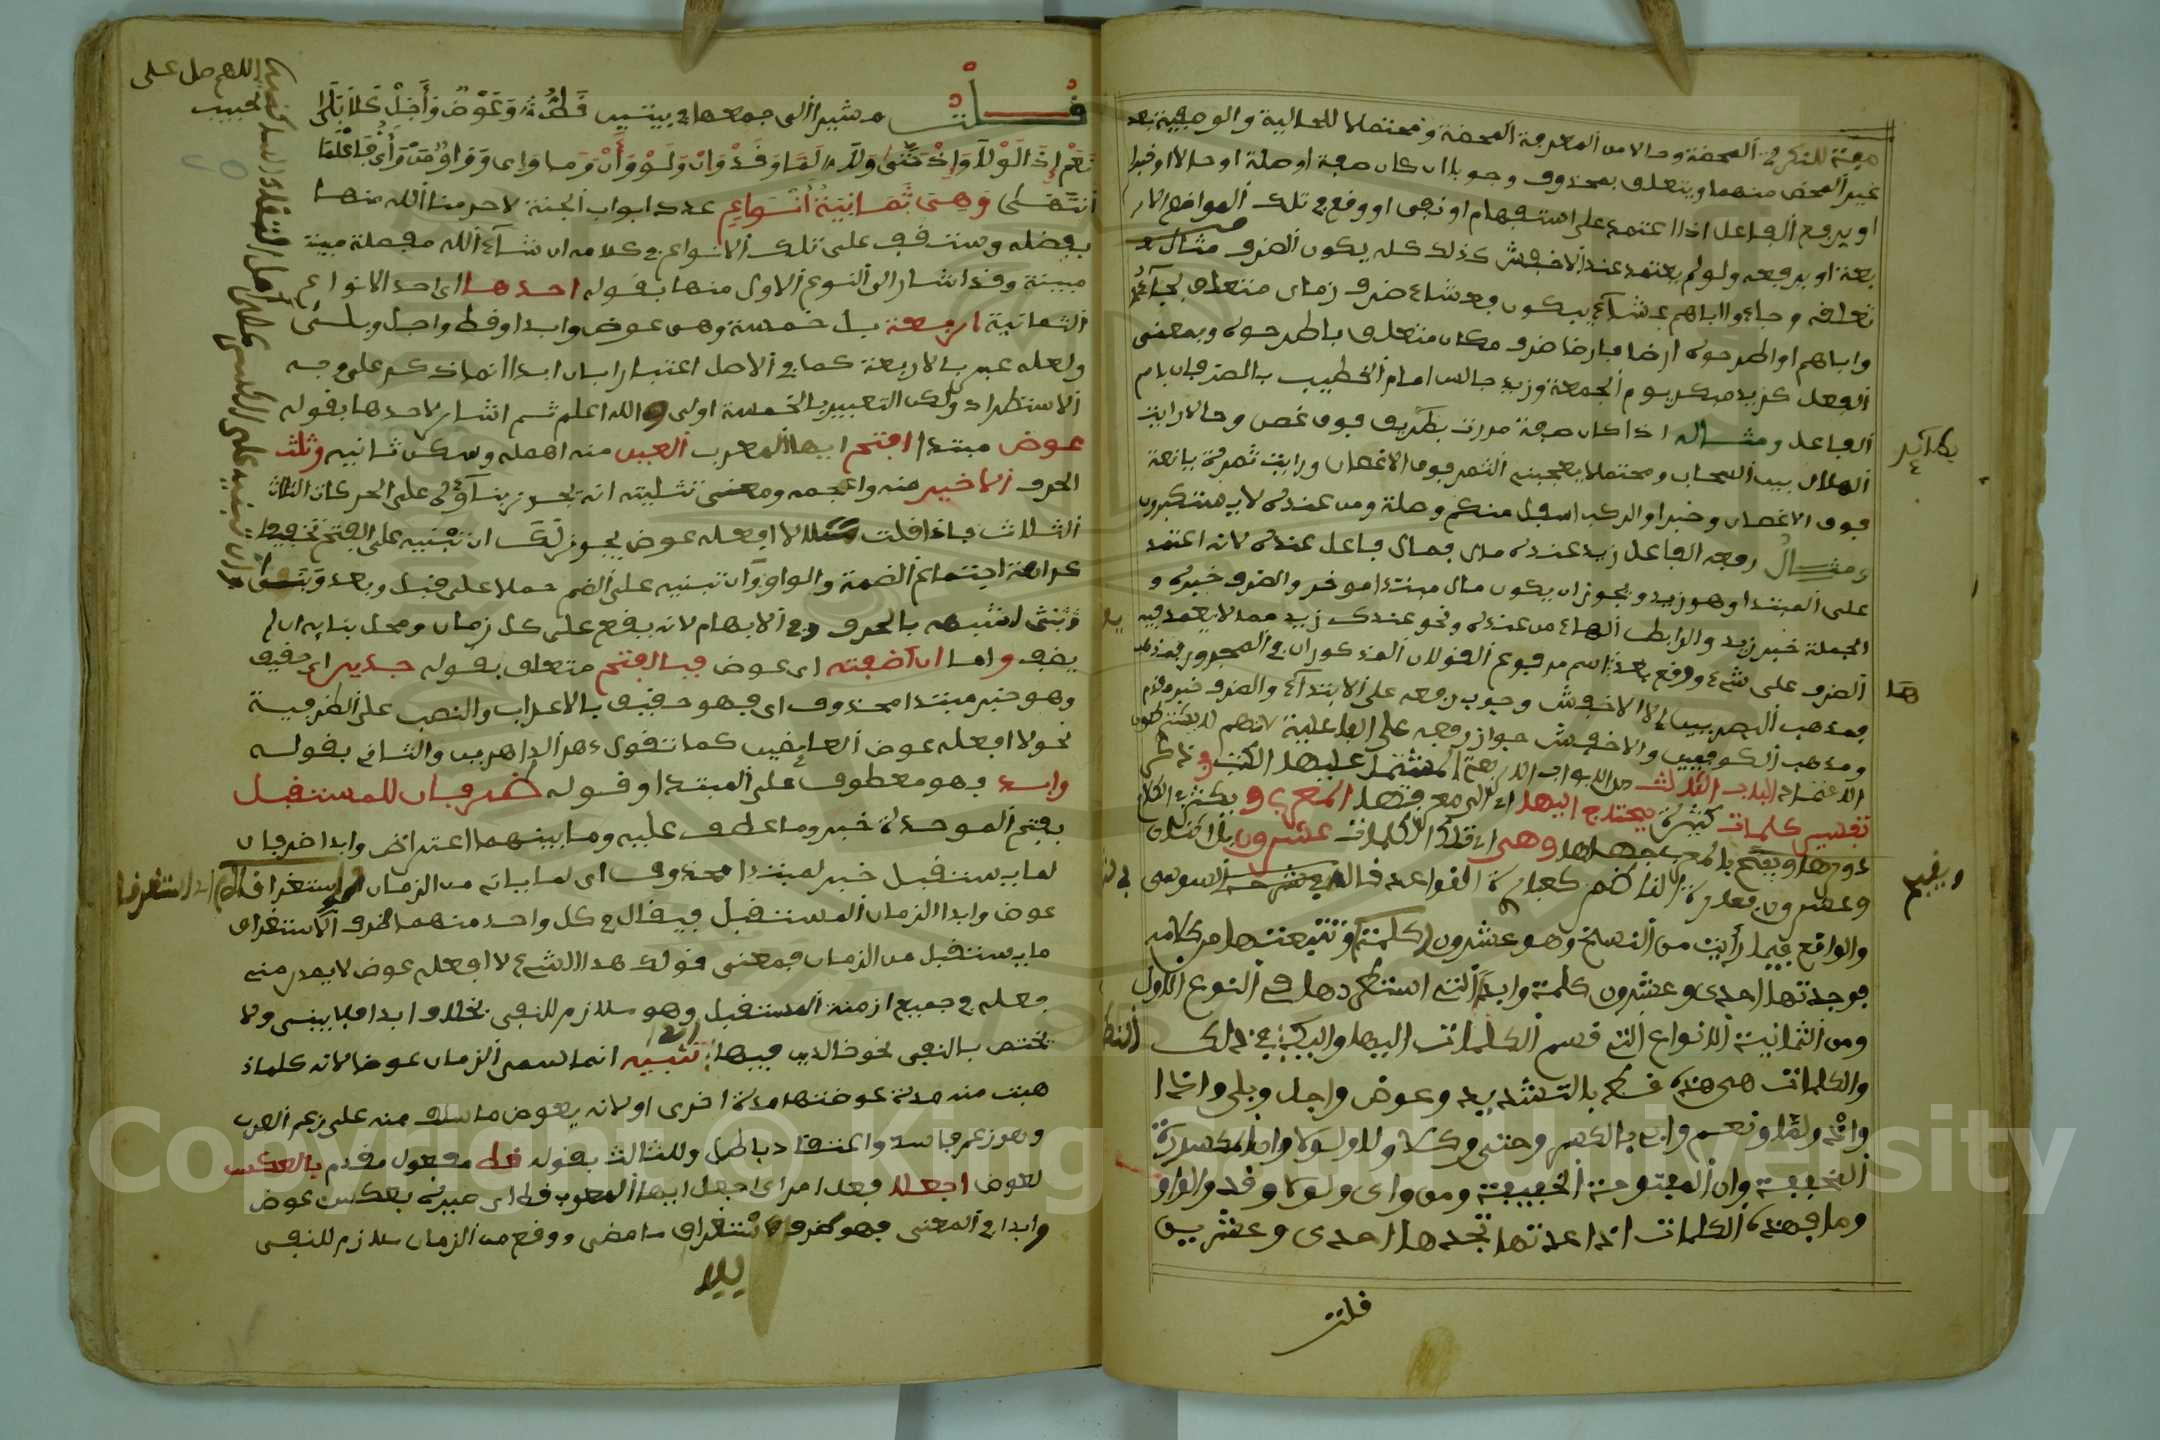 صفة للنكرة المحضة وحالا من المعرفة المحضة ومحتملا للحالية والوصفية بعد
غير المحض منهما ويتعلق بمحذوف وجوبا ان كان صفة او صلة او حالا او خبرا
او يرفع الفاعل اذا اعتمد على استفهام او نفى او وقع في تلك المواضع الار
بعة او يرفعه ولو لم يعتمد عند الاخفش كذلك كله يكون الضرف مثال
تعلقه وجاءوا اباهم عشاء يبكون فعشاء ضرف زمان متعلق بجاءو
واباهم او اطرحوه ارضا فارضا ضرف مكان متعلق باطرحوه وبمعنى
الفعل كزيد مبكر يوم الجمعة وزيد جالس امام الخطيب بالضرفان باسم
الفاعل ومثاله اذا كان صفة مررت بطريف فوق غصن وحالا رايت
الهلال بين السحاب ومحتملا يعجبني الثمر فوق الاغصان ورايت ثمرة يانعة
فوق الاغصان وخبرا والركب اسفل منكم وصلة ومن عنده لا يستكبرون
ومثال رفعه الفاعل زيد عنده مال فمال فاعل عنده لانه اعتمد
على المبتدا وهو زيد ويجوز ان يكون مال مبتدا موخر والضرف خبره و
الجملة خبر زيد والرابط الهاء من عنده ونحو عندك زيد مما لا يعتمد فيه
الضرف على شيء ووقع بعده اسم مرفوع القولان المذكوران في المجرور
فمذهب البصريين الا الاخفش وجوب رفعه على الابتداء والضرف خبر مقدم
ومذهب الكوفيين والاخفش جواز رفعه على الفاعلية لانهم
الباب الثالث من الابواب الاربعة المشتمل عليها الكتب وفي
تفسير كلمات كثيرة يحتاج اليها اى الى معرفتها المعرب ويكثر في الكلام
دورها ويقبح بالمعرب جهلها وهى اى تلك الكلمات عشرون
وعشرون
والواقع فيما رأيت من النسخ وهو عشرون كلمة وتتبعتها من كلامه
فوجدتها احدى وعشرون كلمة وابدا التي استطردها في النوع الاول
ومن الثمانية الانواع التي قسم الكلمات اليها والبك في ذلك
والكلمات هي هذه قط بالتشديد وعوض واجل وبلى واذا
واذ ولما ونعم واى بالكسر وحتى وكلا ولا ولولا وان المكسورة
الخفيفة وان المفتوحة الخفيفة ومن واى ولو وقد والواو
وما فهذه الكلمات اذا عددتها تجدها احدى وعشرين
قلت
ويقبح
هَا
اللهم صل على
الحبيب
قلت مشيرا الى جمعها في بيتين قط وعوض واجل كلا بلى
نعم اذا لولا واذ حتى ولا لما وقد وان ولو وأن وما واى وواو من وأى فاعلما
انتهى وهي ثمانية أنواع عدد ابواب الجنة لا حرمنا الله منها
بفضله وستقف على تلك الانواع في كلامه ان شاء الله مفصلة مبينة
مبينة وقد اشار الى النوع الاول منها بقوله احدها اى احد الانواع
الثمانية اربعة بل خمسة وهى عوض وابدا وقط واجل وبلى
ولعله عبر بالاربعة كما في الاصل اعتبارا بان ابدا انما ذكر على وجه
الاستطراد ولكن التعبير بالخمسة اولى والله اعلم ثم اشار لاحدها بقوله
عوض مبتدا افتح ايها المعرب العين منه اهمله وسكن ثانيه وثلث
الحرف الاخير منه واعجمه ومعنى تثليثه انه يجوز بناؤه على الحركات الثلاث
الثلاث فاذا قلت لا افعله عوض يجوز لك ان تبنيه على الفتح تخفيفا
كراهة اجتماع الضمة والواو وان تبنيه على الضم حملا على قبل وبعد
وبنى لشبهه بالحرف في الابهام لانه يقع على كل زمان ومحل بنايه ان لم
يضف واما ان اضفته اى عوض فبالفتح متعلق بقوله جدير اى حقيق
وهو خبر مبتدا محذوف اى فهو حقيق بالاعراب والنصب على الظرفية
نحو لا افعله عوض العايضين كما تقول دهر الداهرين والثانى بقوله
وابدا فهو معطوف على المبتدا وقوله ضرفان للمستقبل
بفتح الموحدة خبر وما عطف عليه وما بينهما اعتراض وابدا ضرفان
لما يستقبل خبر لمبتدا محذوف اى لما ياتى من الزمان
عوض وابدا الزمان المستقبل فيقال في كل واحد منهما ظرف لاستغراق
ما يستقبل من الزمان فمعنى قولك هذا الشيء لا افعله عوض لا يصدر منى
فعله في جميع ازمنة المستقبل وهو ملازم للنفى بخلاف ابدا فلا يبنى ولا
يختص بالنفى نحو خالدين فيها ابدا تنبيه انما سمى الزمان عوضا لانه كلما ذ
هبت منه مدة عوضتها مدة اخرى او لانه يعوض ما سلف منه على زعم العرب
وهو زعم فاسد واعتقاد باطل وللثالث بقوله قط مفعول مقدم بالعكس
لعوض اجعلا فعل امر اى اجعل ايها المعرب قط اى صيره بعكس عوض
وابدا في المعنى فهو ظرف لاستغراق ما مضى ووقع من الزمان ملازم للنفى